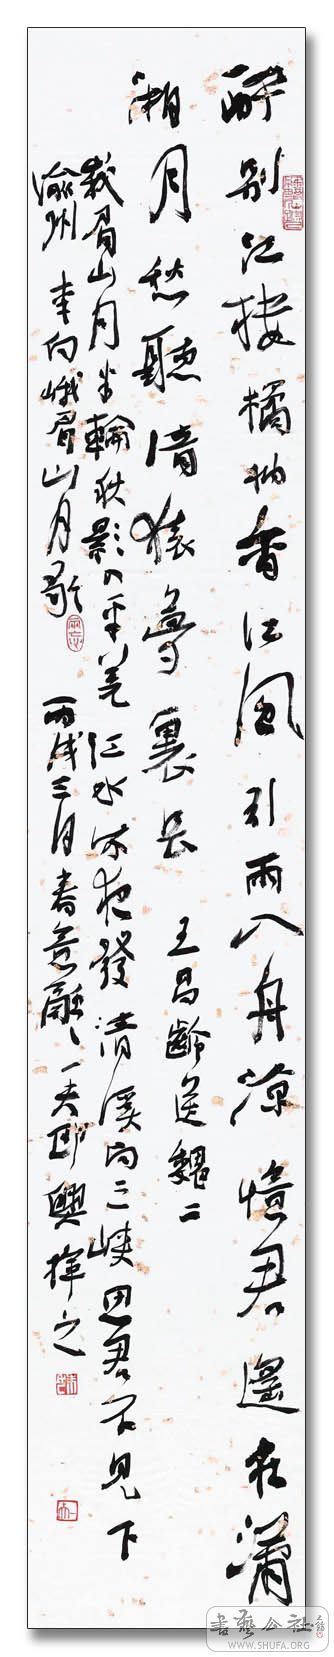 醉别江楼橘柚香江風引雨入舟凉憶君遥在瀟
湘月愁聽清猿夢裏長 王昌齡送魏二
峨眉山月半輪秋影入平羌江水流夜發清溪向三峽思君不見下
渝州 李白峨眉山月歌 丙戌三月春意融融 一夫即興揮之
書藝公社
WWW.SHUFA.ORG